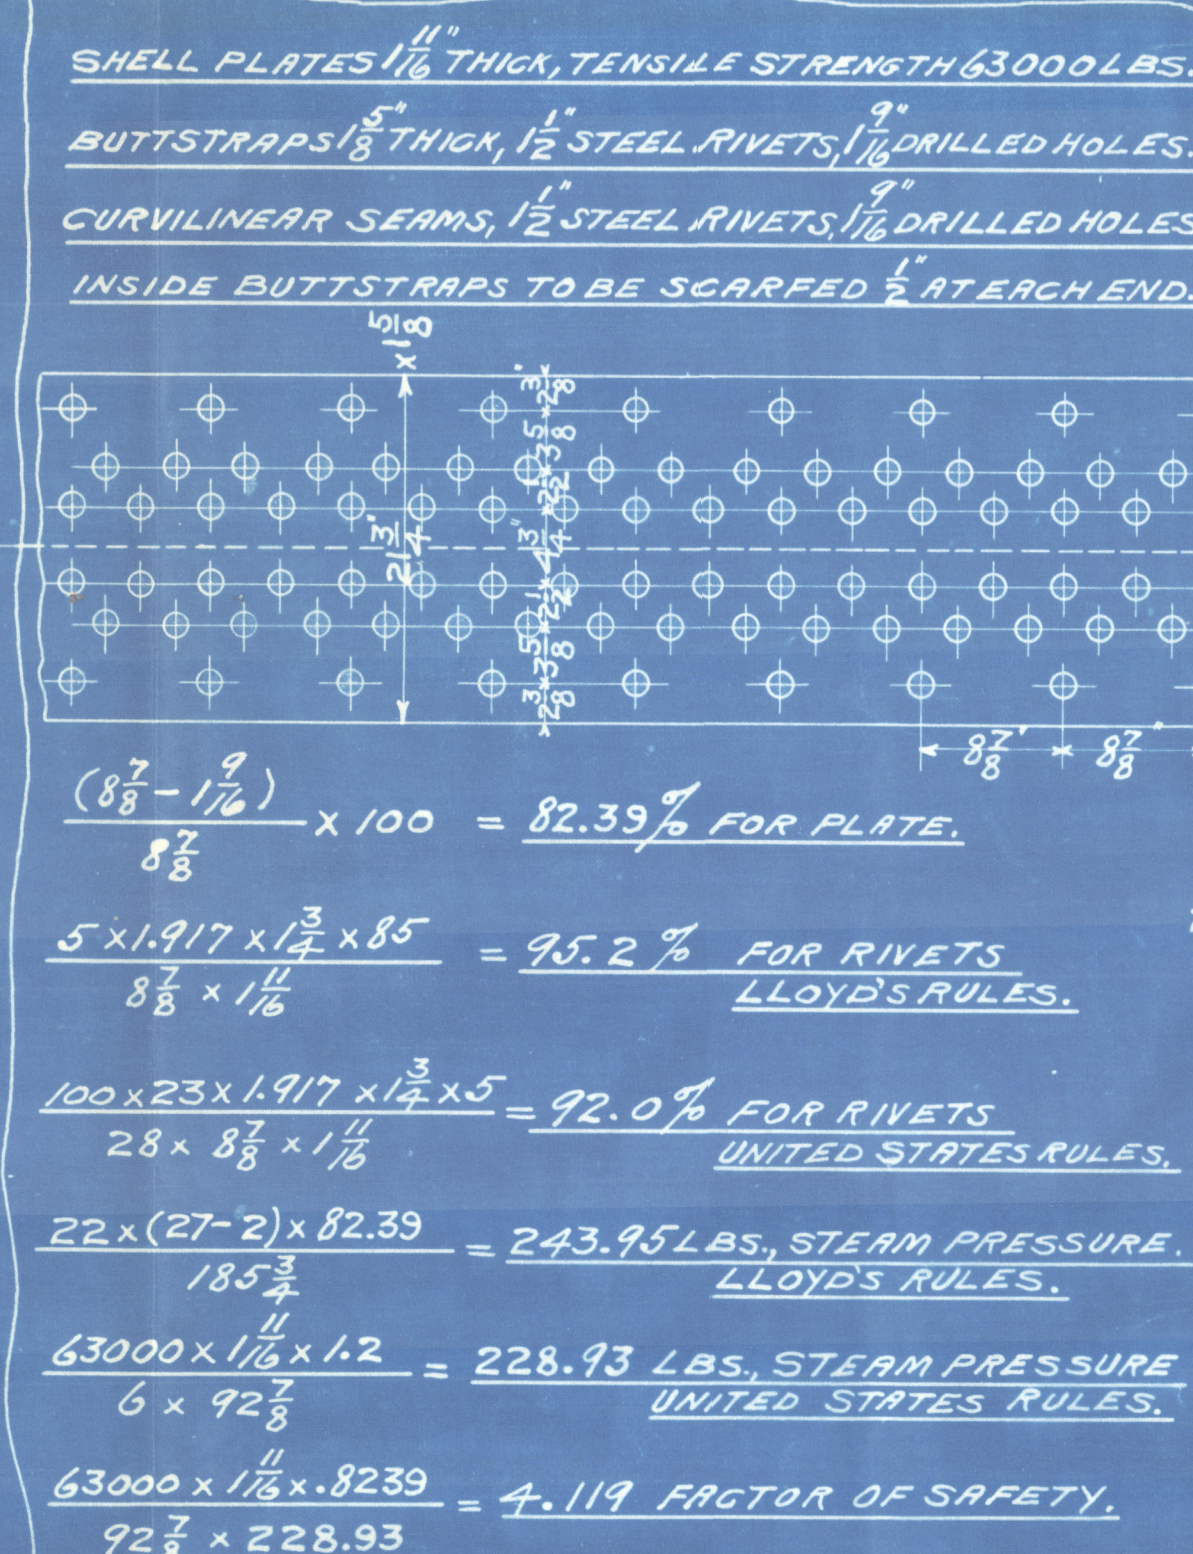 SHELL PLATES 1 11/16" THICK, TENSILE STRENGTH 63000 LBS.
BUTTSTRAPS 1 5/8" THICK, 1 1/2" STEEL RIVETS, 1 9/16" DRILLED HOLES.
CURVILINEAR SEAMS, 1 1/2" STEEL RIVETS, 1 9/16" DRILLED HOLES
INSIDE BUTTSTRAPS TO BE SCARFED 1/2" AT EACH END.
21 3/4" × 1 5/8
2 3/8" × 3 5/8 × 2 1/2 × 4 3/4" × 2 1/2 × 3 5/8 × 2 3/8
8 7/8" 8 7/8"
(8 7/8 - 1 9/16) / 8 7/8 × 100 = 82.39% FOR PLATE.
5 × 1.917 × 1 3/4 × 85 / 8 7/8 × 1 11/16 = 95.2% FOR RIVETS
LLOYD'S RULES.
100 × 23 × 1.917 × 1 3/4 × 5 / 28 × 8 7/8 × 1 11/16 = 92.0% FOR RIVETS
UNITED STATES RULES.
22 × (27-2) × 82.39 / 185 3/4 = 243.95 LBS., STEAM PRESSURE.
LLOYD'S RULES.
63000 × 1 11/16 × 1.2 / 6 × 92 7/8 = 228.93 LBS., STEAM PRESSURE
UNITED STATES RULES.
63000 × 1 11/16 × .8239 / 92 7/8 × 228.93 = 4.119 FACTOR OF SAFETY.